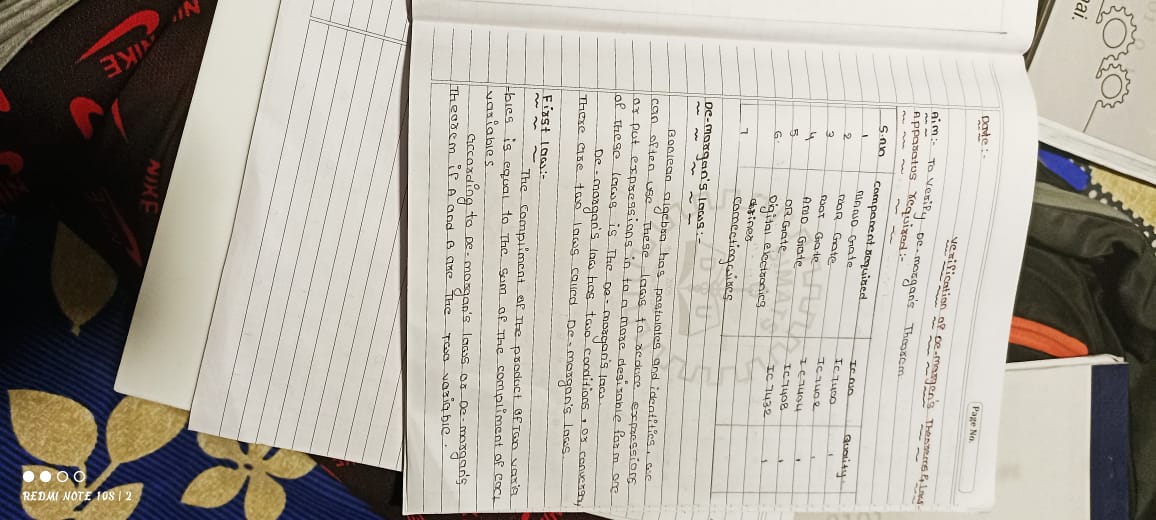 Page No.
Date :-
Verification of De-morgan's Theorems & laws
Aim:- To verify De-morgan's Theorem
Apparatus required:-
S.no Component required IC no Quality
1 NAND Grate IC 7400 1
2 NOR Grate IC 7402 1
3 NOT Grate IC 7404 1
4 AND Grate IC 7408 1
5 OR Grate IC 7432 1
6. Digital electronics
7 Connecting wires
De-morgan's laws:-
Boolean algebra has postulates and identities, we
can often use These laws to reduce expressions
or put expressions in to a more desirable form one
of These laws is The De-morgan's law.
De-morgan's law has two conditions, or conversly
There are two laws called De-morgan's laws.
First law:-
The compliment of The product of Two varia
-bles is equal to The sum of The compliment of each
variables.
according to De-morgan's laws or De-morgan's
Theorem if A and B are The Two variable.
NIKE
NIKE
NIKE
REDMI NOTE 10S | 2